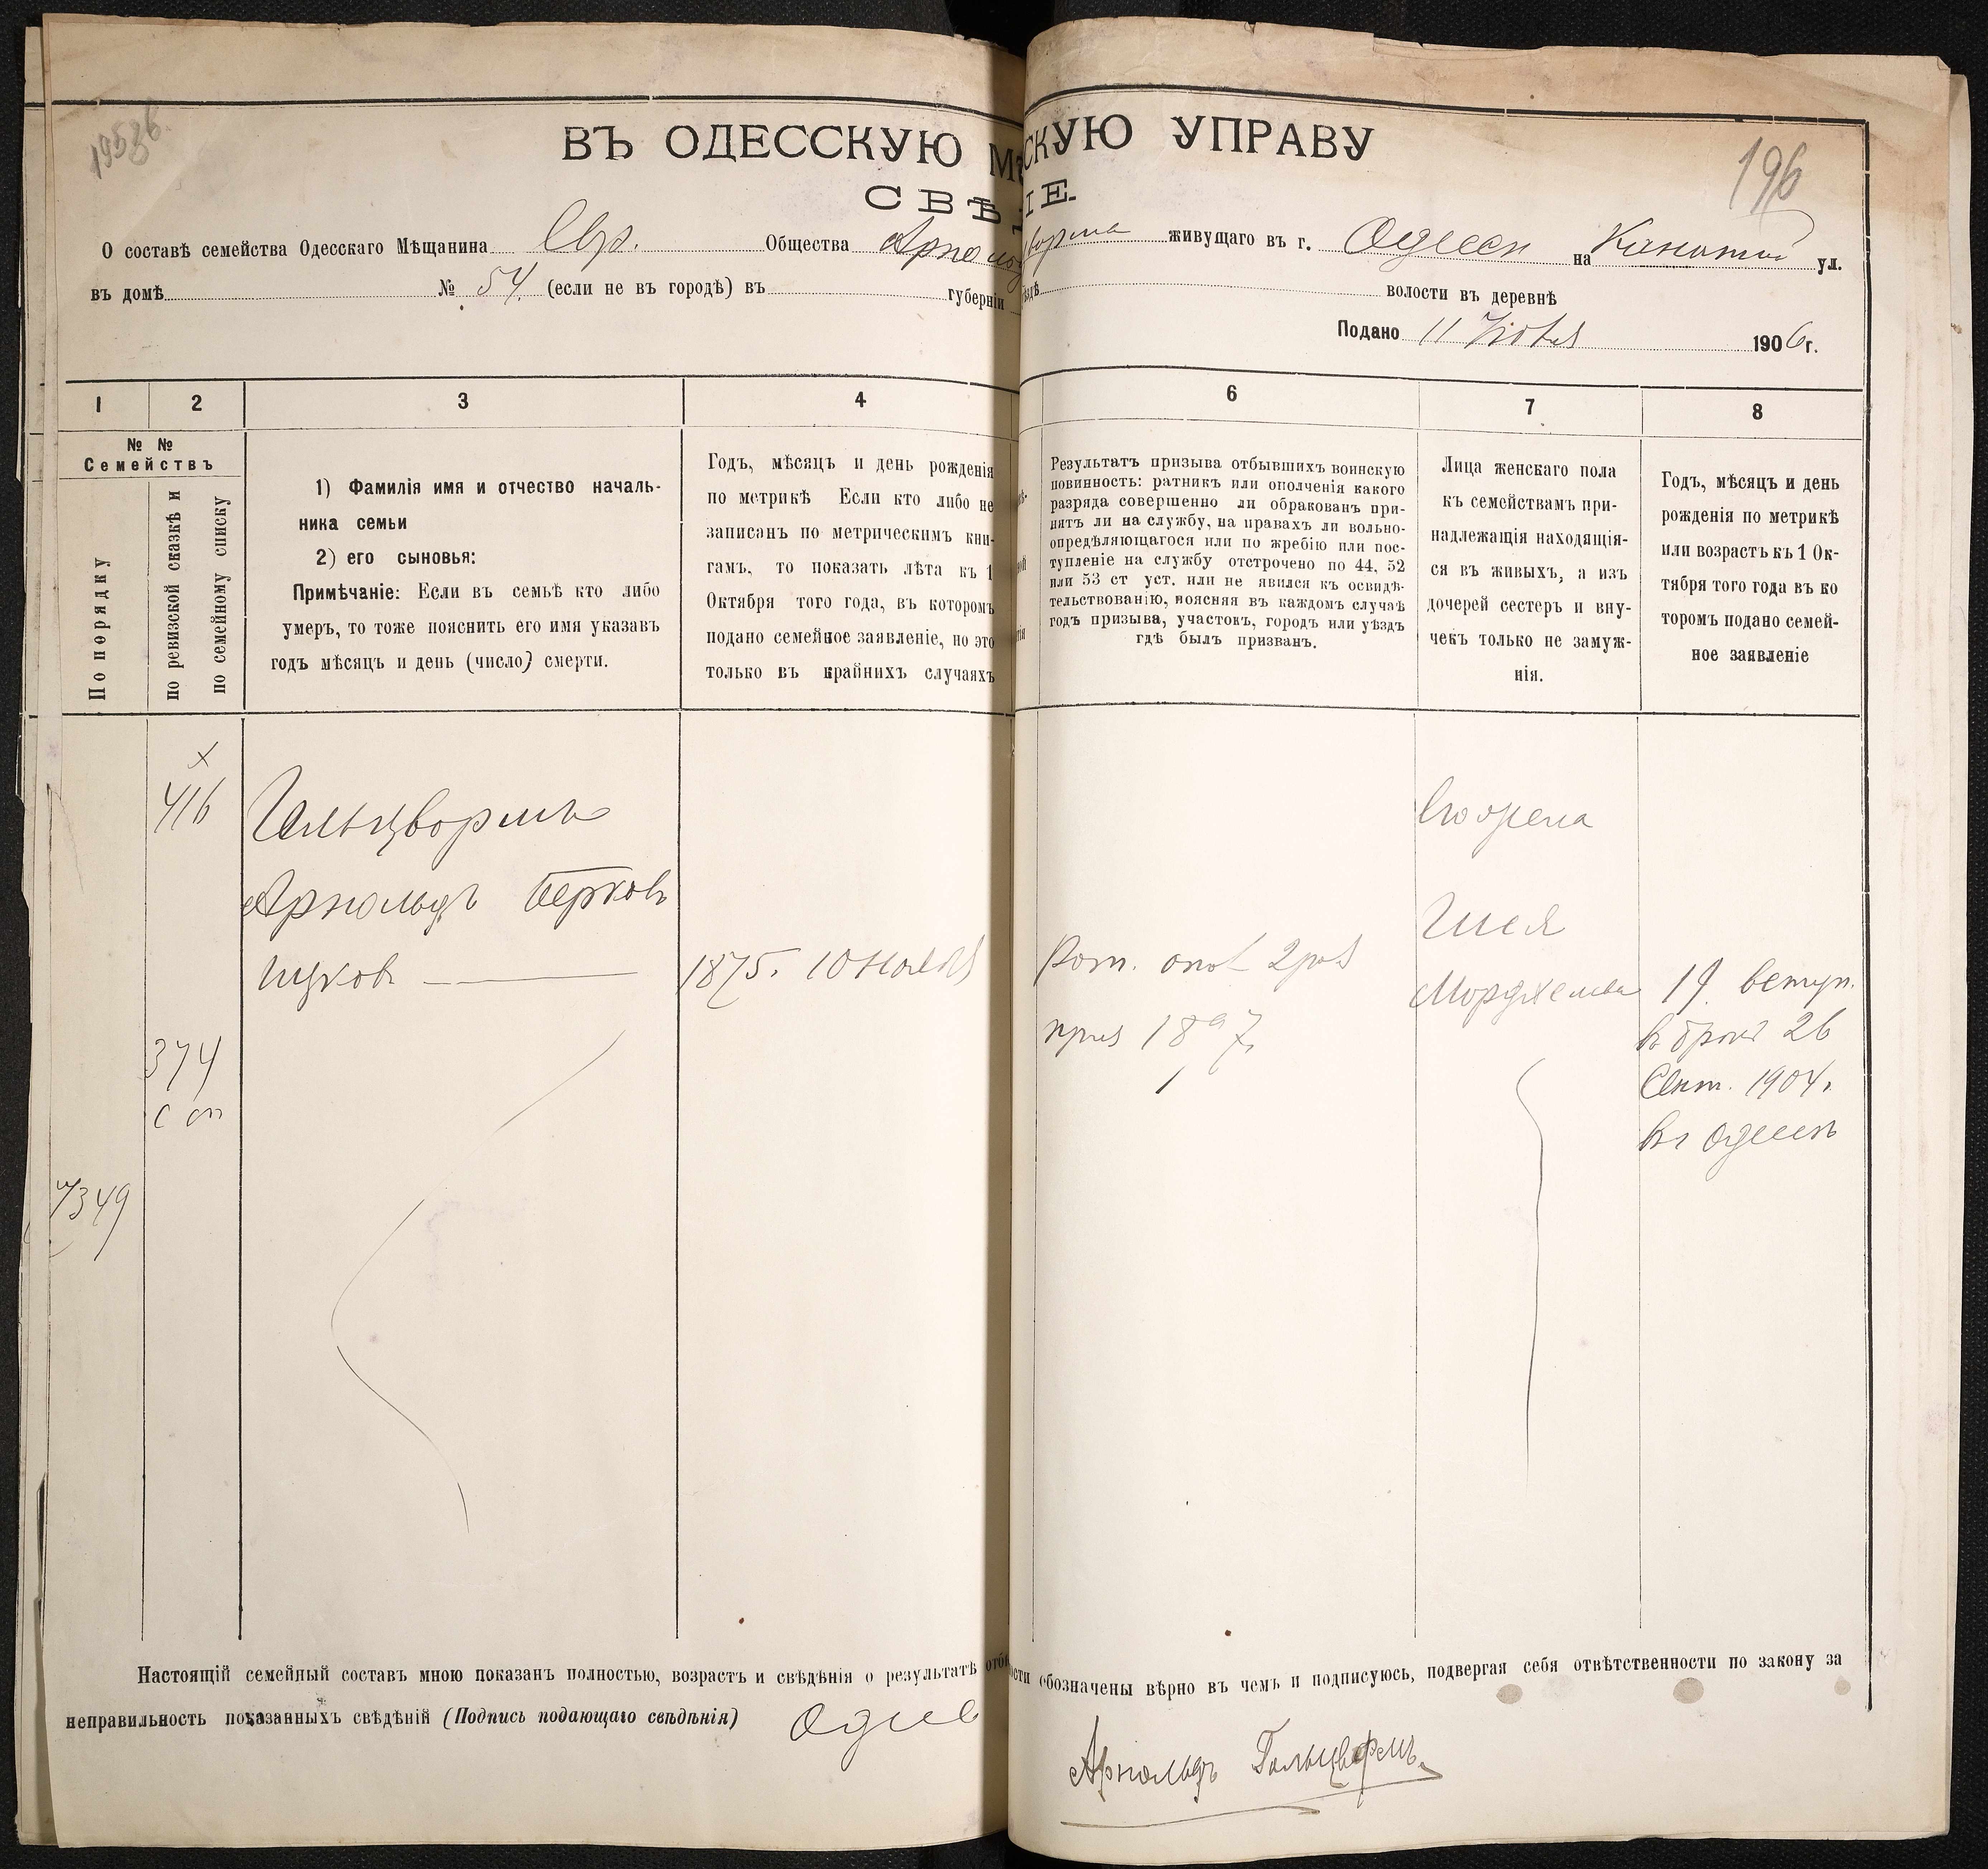 19536
196
ВЪ ОДЕССКУЮ М СКУЮ УПРАВУ
СВѢ ІЕ.
О составѣ семейства Одесскаго Мѣщанина Евр. Общества живущаго въ г. Одессѣ на Канатной ул.
въ домѣ № 54. (если не въ городѣ) въ губерніи ѣздѣ волости въ деревнѣ
Подано 11 1906 г.
1 2 3 4 6 7 8
№ №
Семействъ
По порядку
по ревизской сказкѣ и
по семейному списку
1) Фамилія имя и отчество началь-
ника семьи
2) его сыновья:
Примѣчаніе: Если въ семьѣ кто либо
умеръ, то тоже пояснить его имя указавъ
годъ мѣсяцъ и день (число) смерти.
Годъ, мѣсяцъ и день рожденія
по метрикѣ Если кто либо не
записанъ по метрическимъ кни-
гамъ, то показать лѣта къ 1
Октября того года, въ которомъ
подано семейное заявленіе, но это
только въ крайнихъ случаяхъ
Результатъ призыва отбывшихъ воинскую
повинность: ратникъ или ополченія какого
разряда совершенно ли обракованъ при-
нятъ ли на службу, на правахъ ли вольно-
опредѣляющагося или по жребію или пос-
тупленіе на службу отстрочено по 44, 52
или 53 ст уст. или не явился къ освидѣ-
тельствованію, поясняя въ каждомъ случаѣ
годъ призыва, участокъ, городъ или уѣздъ
гдѣ былъ призванъ.
Лица женскаго пола
къ семействамъ при-
надлежащія находящія-
ся въ живыхъ, а изъ
дочерей сестеръ и вну-
чекъ только не замуж-
нія.
Годъ, мѣсяцъ и день
рожденія по метрикѣ
или возрастъ къ 1 Ок-
тября того года въ ко
торомъ подано семей-
ное заявленіе
х
416
Гольцвормъ
Арнольдъ Берков
Ицков
1875. 10 Ноября
Рат. опол 2 раз
приз 1897
1
Его жена
Гися
19. вступ.
въ бракъ 26
Сент. 1904 г.
въ Одессѣ
374
с сп
7349
Настоящій семейный составъ мною показанъ полностью, возрастъ и свѣдѣнія о результатѣ отбы ости обозначены вѣрно въ чемъ и подписуюсь, подвергая себя отвѣтственности по закону за
неправильность показанныхъ свѣдѣній (Подпись подающаго свѣдѣнія)
Арнольдъ Гольцвормъ.